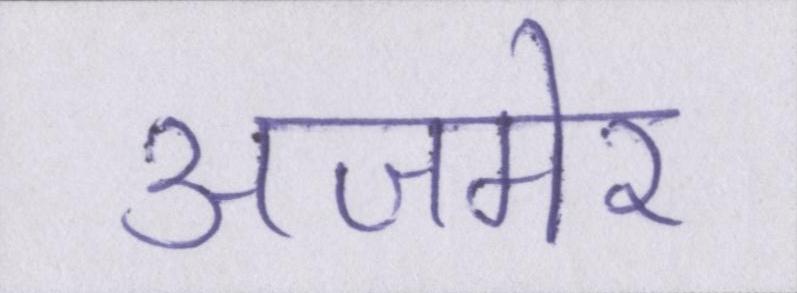 अजमेर